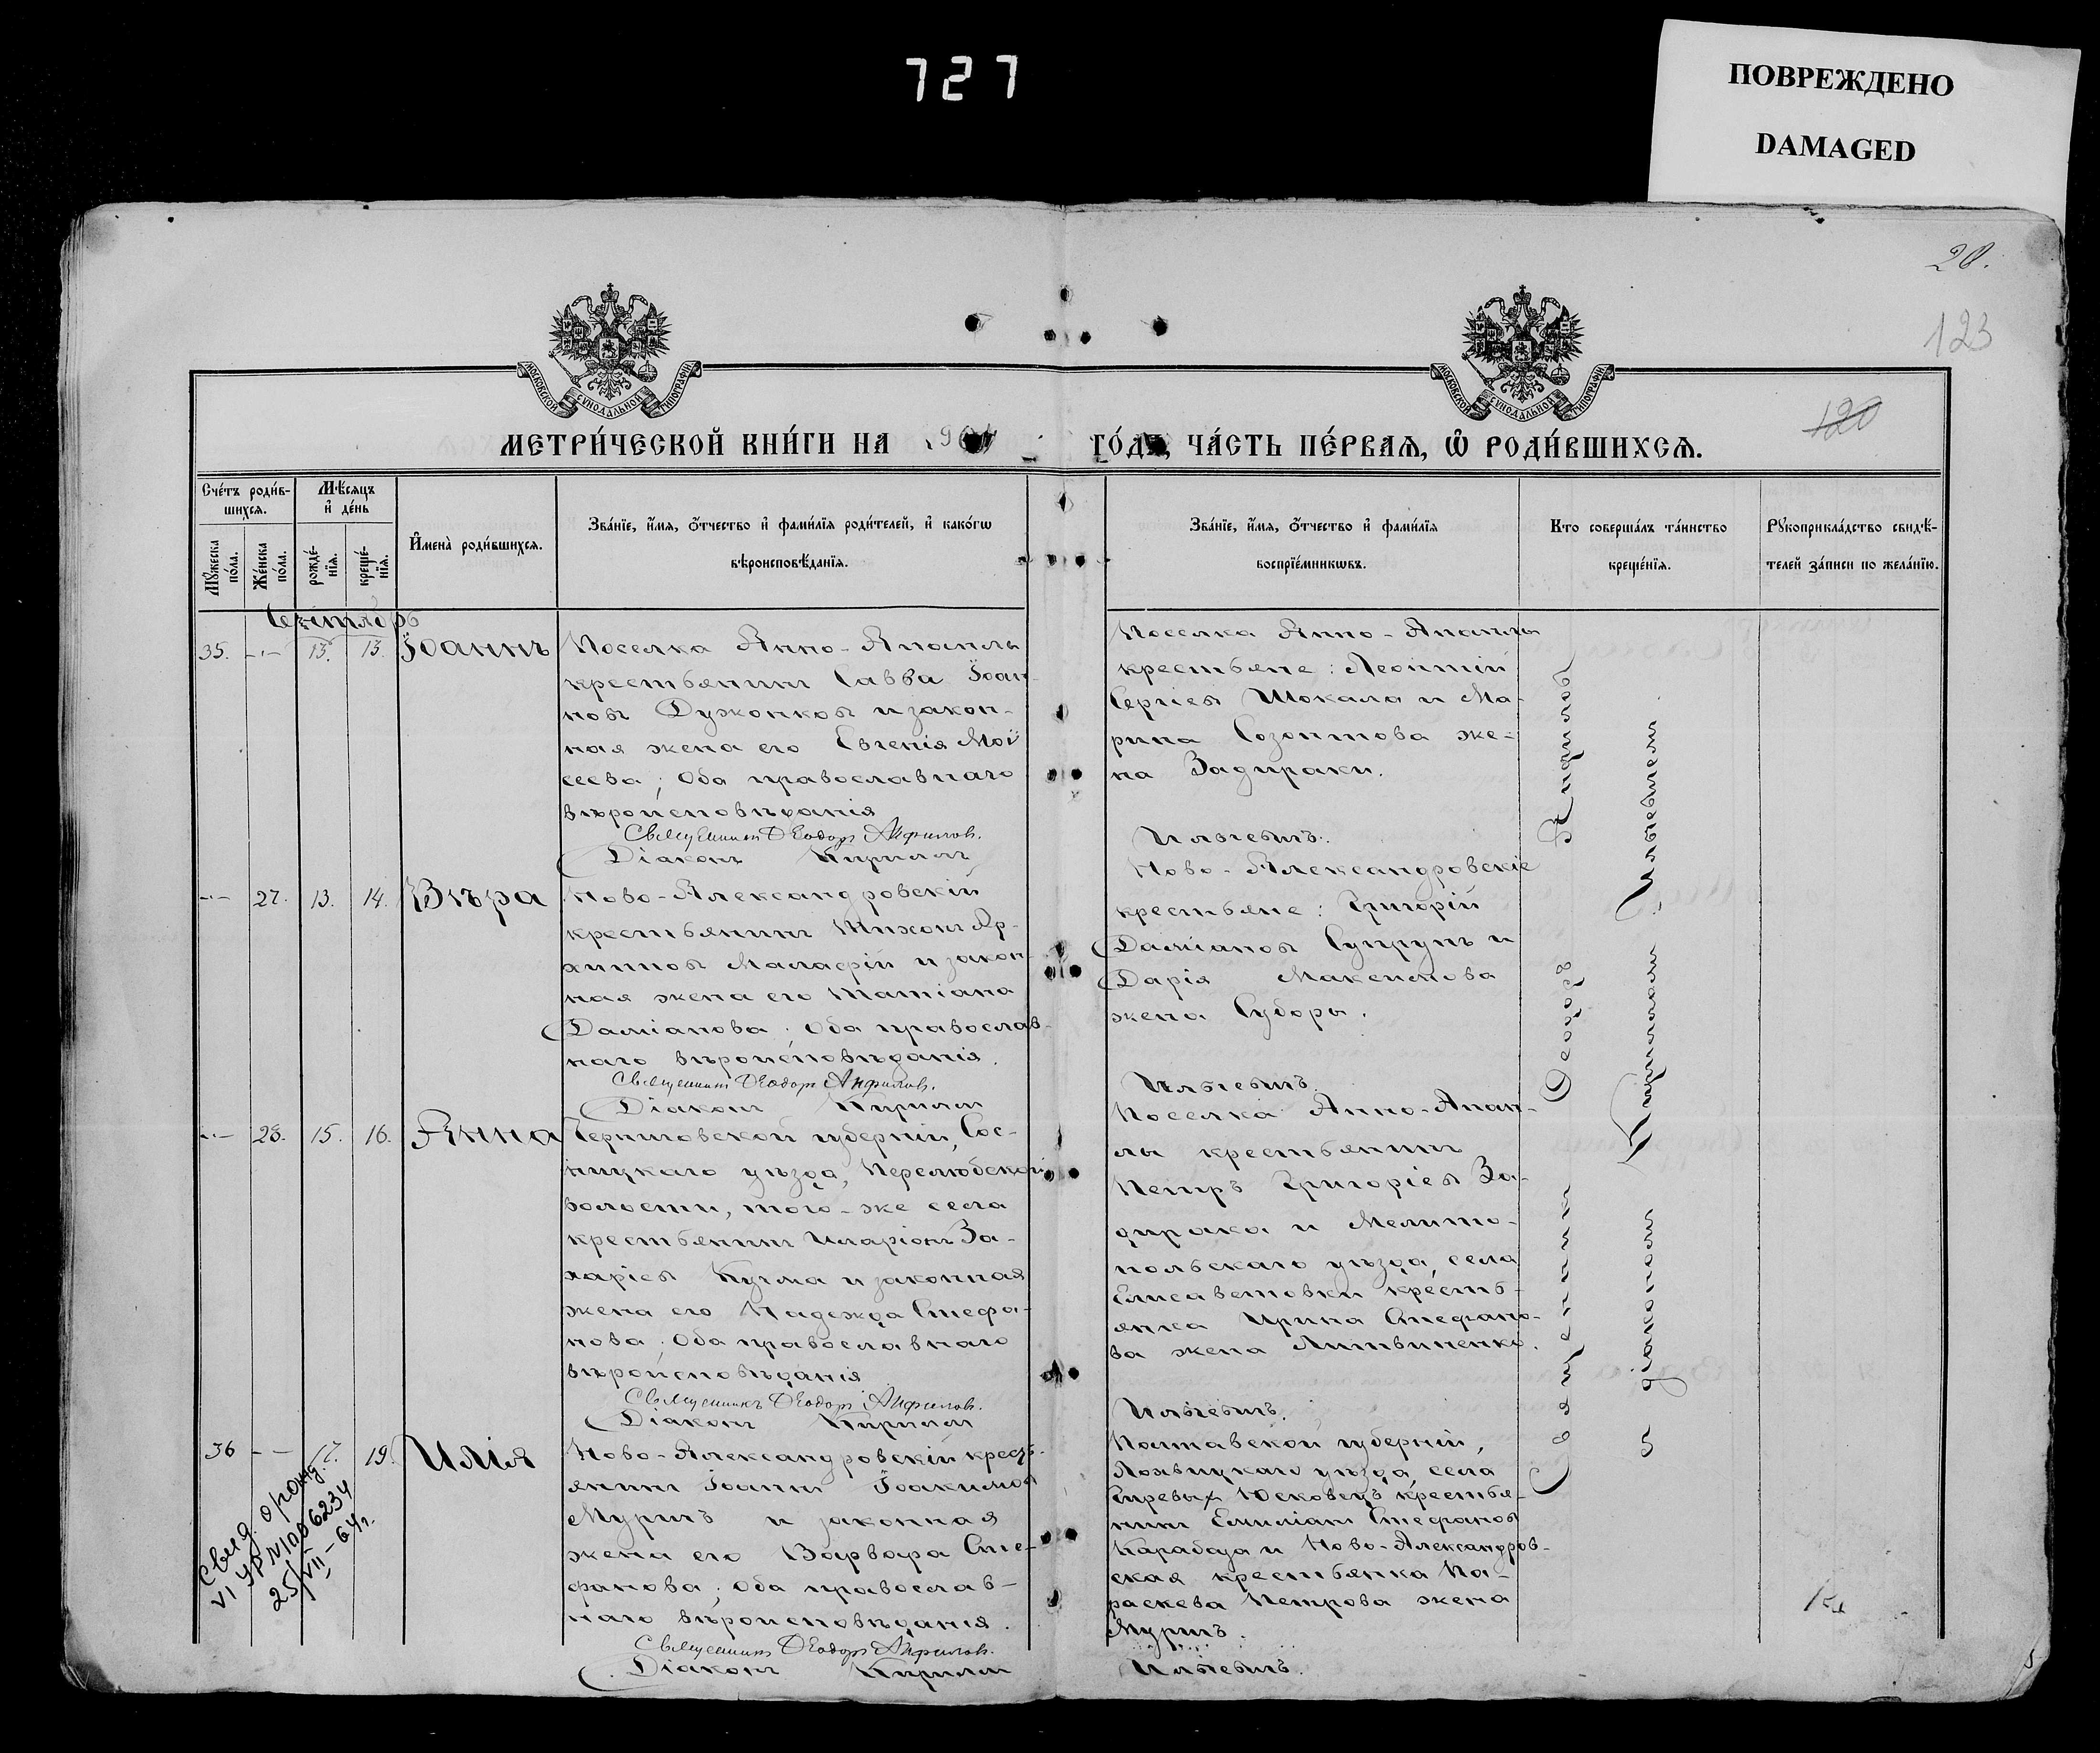 727
ПОВРЕЖДЕНО
DAMAGED
20.
123
120
МОСКОВСКОЙ СѴНОДАЛЬНОЙ ТИПОГРАФІИ
МОСКОВСКОЙ СѴНОДАЛЬНОЙ ТИПОГРАФІИ
МЕТРИ́ЧЕСКОЙ КНИ́ГИ НА 1904 ГО́ДЪ, ЧА́СТЬ ПЕ́РВАѦ, Ѡ҆ РОДИ́ВШИХСѦ.
Сче́тъ роди́в-
шихсѧ.
Мꙋ́жеска по́ла.
Же́нска по́ла.
Мѣ́сѧцъ
и҆ де́нь
рожде́-
нїѧ.
креще́-
нїѧ.
И҆мена̀ роди́вшихсѧ.
Зва́нїе, и҆́мѧ, ѻ҆́тчество и҆ фами́лїѧ роди́телей, и҆ како́гѡ
вѣроисповѣ́данїѧ.
Зва́нїе, и҆́мѧ, ѻ҆́тчество и҆ фами́лїѧ
воспрїе́мникѡвъ.
Кто соверша́лъ та́инство
креще́нїѧ.
Рꙋкоприкла́дство свидѣ́-
телей за́писи по жела́нїю.
Сентябрь
35. -"- 13. 13. Іоаннъ
Поселка Анно-Апанлы
крестьянинъ Савва Іоан-
новъ Дужонковъ и закон-
ная жена его Евгенія Мой
сеева; Оба православнаго
вѣроисповѣданія
Священникъ Ѳеодоръ Анфиловъ.
Діаконъ Кириллъ
Поселка Анно-Апанлы
крестьяне: Леонтій
Сергіевъ Шокала и Ма-
рина Созонтова же-
на Задираки.
Ильгевичъ.
-"- 27. 13. 14. Вѣра
Ново-Александровскій
крестьянинъ Тихонъ Ар-
хиповъ Маласрій и закон-
ная жена его Татіана
Даміанова; Оба православ-
наго вѣроисповѣданія.
Священникъ Ѳеодоръ Анфиловъ.
Діаконъ Кириллъ
Ново-Александровскіе
крестьяне: Григорій
Даміановъ Супрунъ и
Дарія Максимова
жена Суборы.
Ильгевичъ.
-"- 28. 15. 16. Анна
Черниговской губерніи, Сос-
ницкаго уѣзда, Перелюбской
волости, того-же села
крестьянинъ Иларіонъ За-
харіевъ Кузма и законная
жена его Надежда Стефа-
нова; Оба православнаго
вѣроисповѣданія
Священникъ Ѳеодоръ Анфиловъ.
Діаконъ Кириллъ
Поселка Анно-Апан-
лы крестьянинъ
Петръ Григоріевъ За-
дирака и Мелито-
польскаго уѣзда, села
Елисаветовки кресть-
янка Ирина Стефано-
ва жена Литвиненко.
Ильгевичъ.
36 -- 17. 19. Илія
Ново-Александровскій кресть-
янинъ Іоаннъ Іоакимовъ
Муричъ и законная
жена его Варвара Сте-
фанова; Оба православ-
наго вѣроисповѣданія.
Священникъ Ѳеодоръ Анфиловъ.
Діаконъ Кириллъ
Полтавской губерніи,
Лохвицкаго уѣзда, села
Юсковецъ крестья-
нинъ Емиліанъ Стефановъ
Карабаза и Ново-Александров-
ская крестьянка Па-
раскева Петрова жена
Муричъ.
Ильгевичъ.
Священникъ Ѳеодоръ Анфиловъ
съ діакономъ Кирилломъ Ильгевичемъ
Свид. о рожд.
VI УР №1106234
25/VII-64г.